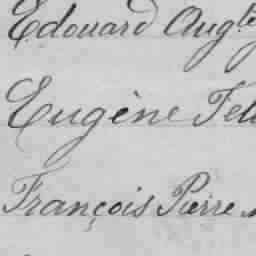 Edouard Aug.te
Eugène Fel
François Pierre